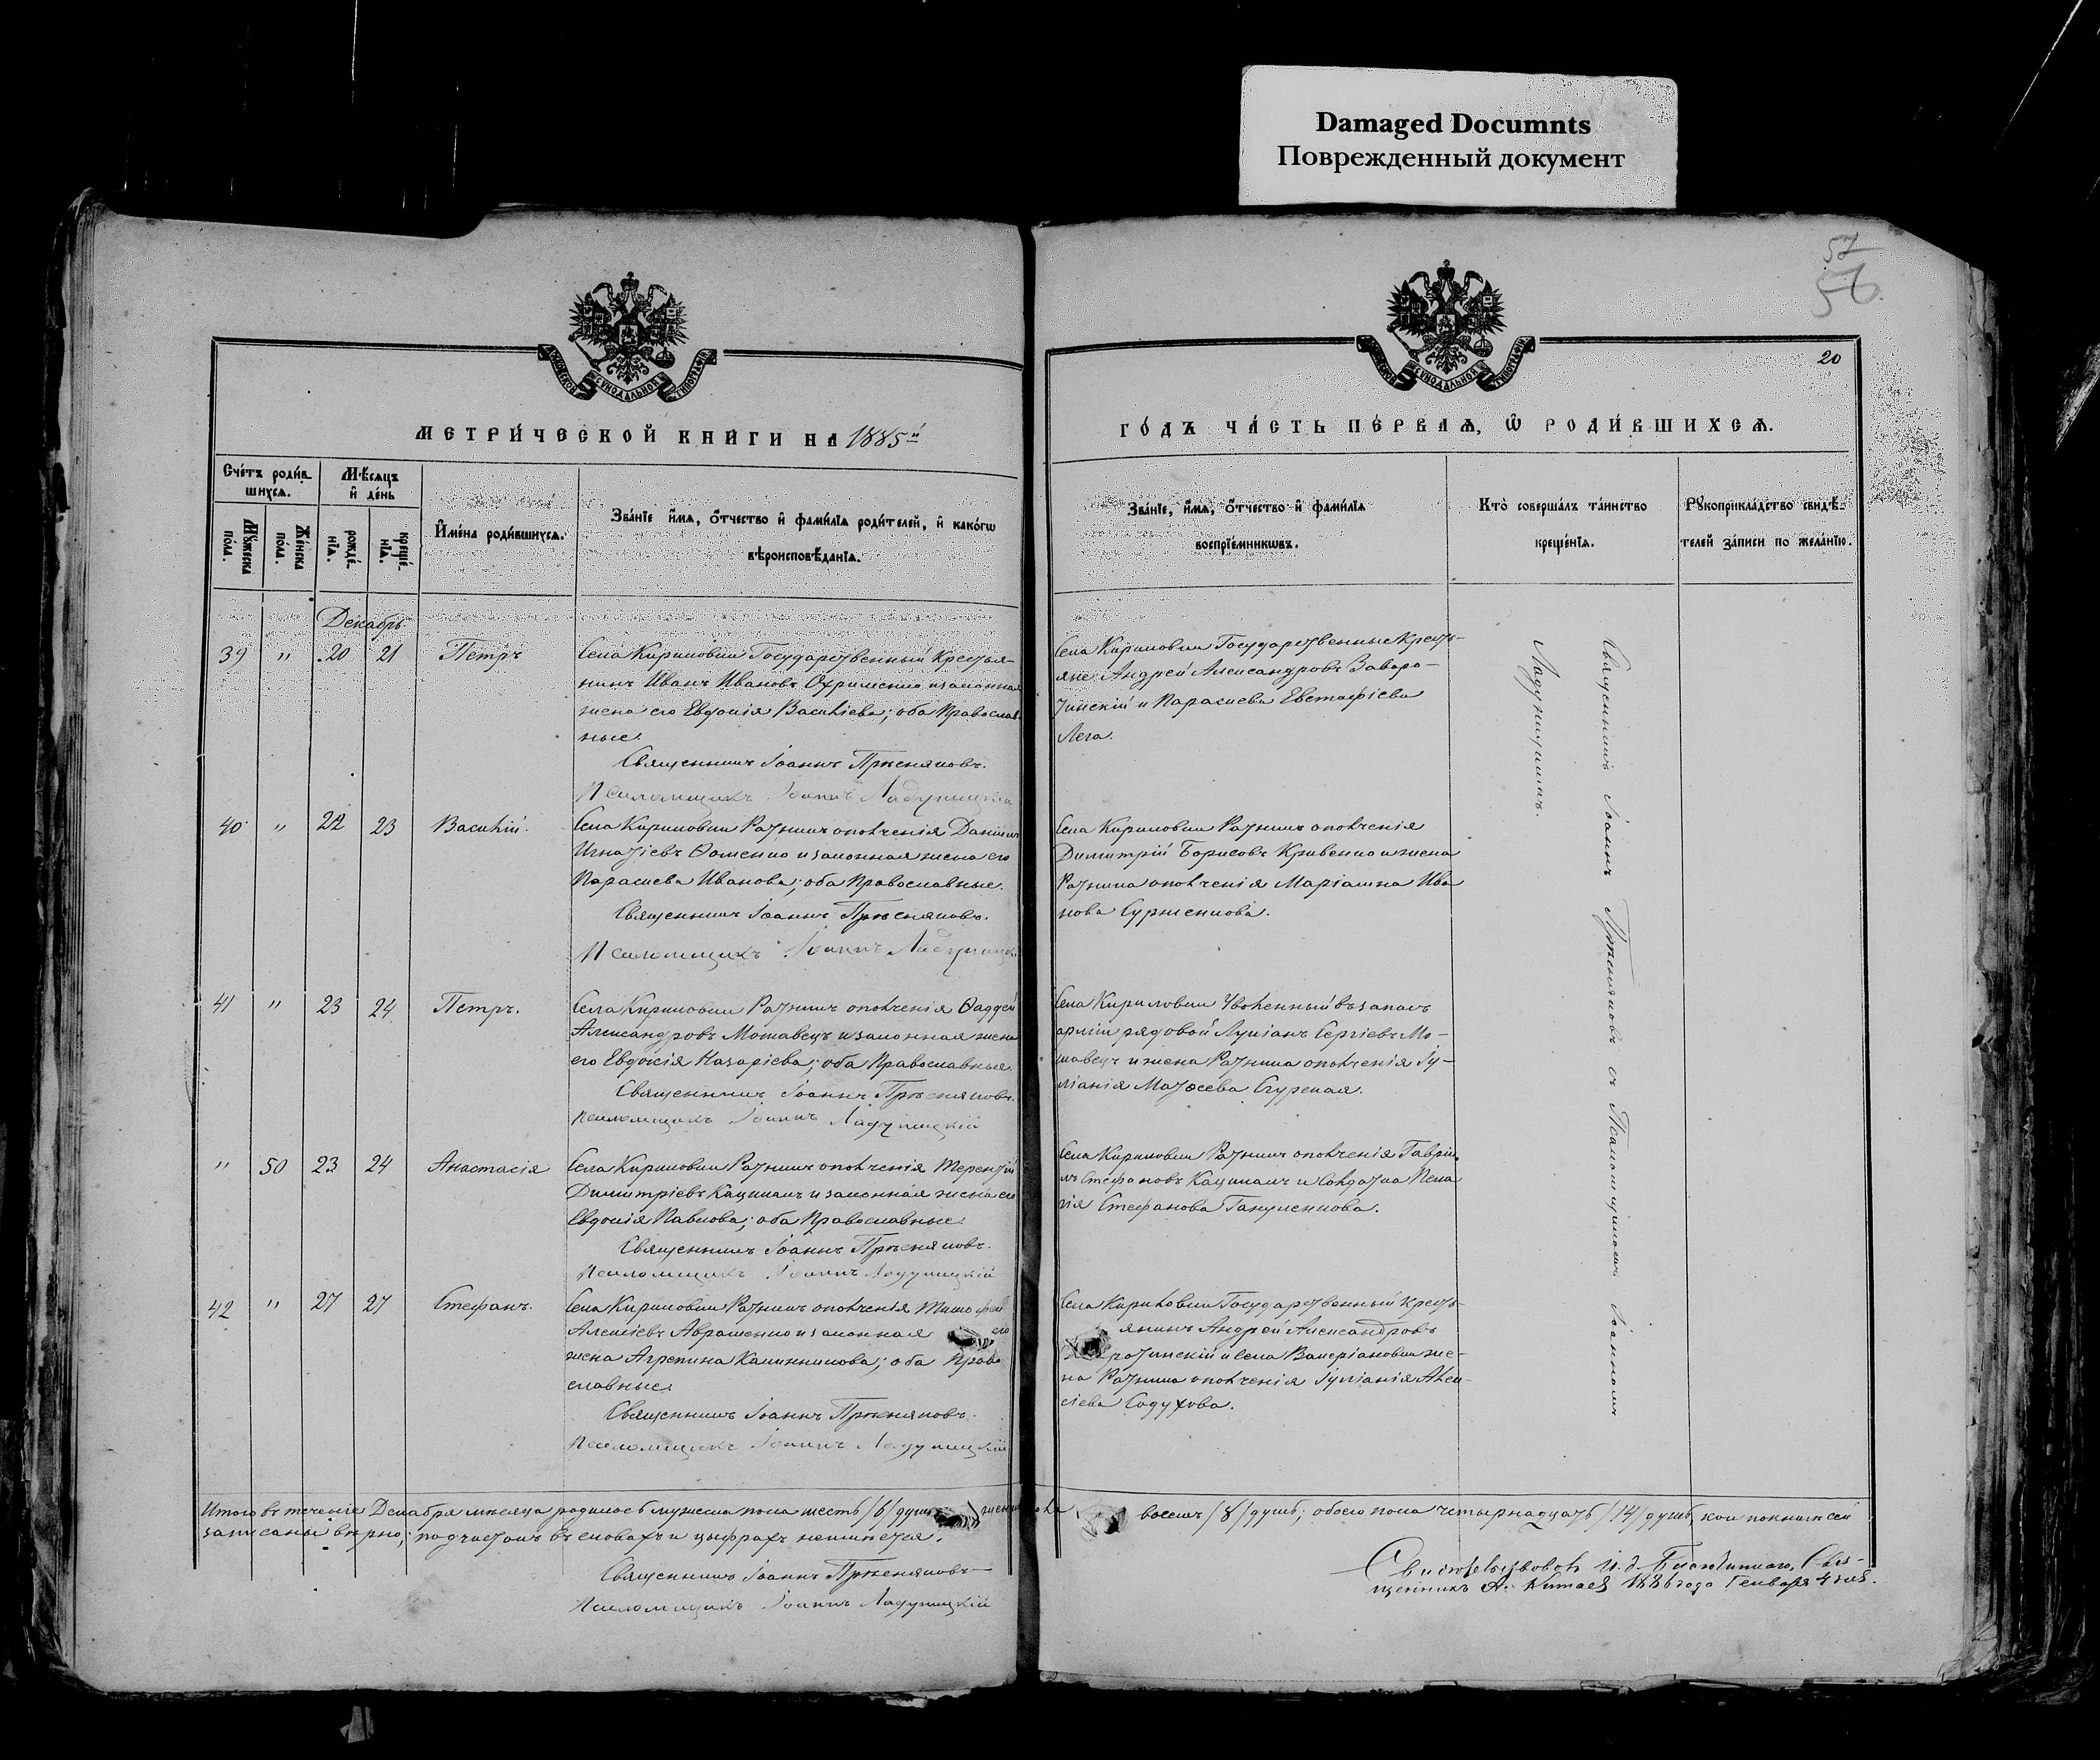 Damaged Documnts
Поврежденный документ
57
56.
20
МОСКОВСКОЙ СѴНОДАЛЬНОЙ ТИПОГРАФІИ
МОСКОВСКОЙ СѴНОДАЛЬНОЙ ТИПОГРАФІИ
МЕТРИ́ЧЕСКОЙ КНИ́ГИ НА 1885й
ГО́ДЪ ЧА́СТЬ ПЕ́РВАѦ, Ѡ҆ РОДИ́ВШИХСѦ.
Сче́тъ роди́в
шихсѧ.
Мѣ́сѧцъ
и҆ де́нь
Мꙋ́жеска
по́ла.
Же́нска
по́ла.
рожде́-
нїѧ.
креще́-
нїѧ.
И҆мена̀ роди́вшихсѧ.
Зва́нїе и҆́мѧ, ѻ҆́тчество и҆ фами́лїѧ роди́телей, и҆ како́гѡ
вѣроисповѣ́данїѧ.
Зва́нїе, и҆́мѧ, ѻ҆́тчество и҆ фами́лїѧ
воспрїе́мникѡвъ.
Кто̀ соверша́лъ та́инство
креще́нїѧ.
Рꙋкоприкла́дство свидѣ́-
телей за́писи по жела́нїю.
Декабрь
39 " 20 21 Петръ
Села Кириловки Государственный крестья-
нинъ Иванъ Ивановъ Охрименко и законная
жена его Евдокія Василіева; оба Православ-
ные.
Священникъ Іоаннъ Прѣсняковъ.
Псаломщикъ Іоаннъ Ладухицкій
Села Кириловки Государственные Кресть-
яне Андрей Александровъ Заворо-
тинскій и Параскева Евстафіева
Лега.
40 " 22 23 Василій.
Села Кириловки Ратникъ ополченія Даніилъ
Игнатіевъ Ѳоменко и законная жена его
Параскева Иванова; оба Православные.
Священникъ Іоаннъ Прѣсняковъ.
Псаломщикъ Іоаннъ
Села Кириловки Ратникъ ополченія
Димитрій Борисовъ Кривенко и жена
Ратника ополченія Маріамна Ива
нова Сурженкова.
41 " 23 24 Петръ.
Села Кириловки Ратникъ ополченія Ѳаддей
Александровъ Мошавецъ и законная жена
его Евдокія Назаріева; оба Православные.
Священникъ Іоаннъ Прѣсняковъ.
Псаломщикъ Іоаннъ
Села Кириловки Уволенный въ запасъ
арміи рядовой Лукіанъ Сергіевъ Мо-
шавецъ и жена Ратника ополченія Іу-
ліанія Матѳеева
" 50 23 24 Анастасія
Села Кириловки Ратникъ ополченія Терентій
Димитріевъ Кацманъ и законная жена его
Евдокія Павлова; оба Православные.
Священникъ Іоаннъ Прѣсняковъ.
Псаломщикъ Іоаннъ
Села Кириловки Ратникъ ополченія Гаврі
илъ Стефановъ Кацманъ и Солдатка Пела
гія Стефанова
42 " 27 27 Стефанъ.
Села Кириловки Ратникъ ополченія Тимофей
Алексіевъ Авраменко и законная его
жена Агрепина Калинникова; оба Право
славные.
Священникъ Іоаннъ Прѣсняковъ.
Псаломщикъ Іоаннъ
Села Кириловки Государственный кресть-
янинъ Андрей Александровъ
ротинскій и села Валеріановки же-
на Ратника ополченія Іуліанія Алек-
сіева
Священникъ Іоаннъ Прѣсняковъ съ Псаломщикомъ Іоанномъ
Итого въ теченіе Декабря мѣсяца родилось мужеска пола шесть /6/ душъ женска пола восемь /8/ душъ; обоего пола четырнадцать /14/ душъ, кои по книгѣ сей
записаны вѣрно; подчистокъ въ словахъ и цыфрахъ не имѣется.
Священникъ Іоаннъ Прѣсняковъ
Псаломщикъ Іоаннъ
Свидѣтельствовалъ И. д. Благочиннаго, Свя-
щенникъ А. Китаевъ 1886 года Генваря 4 дня.